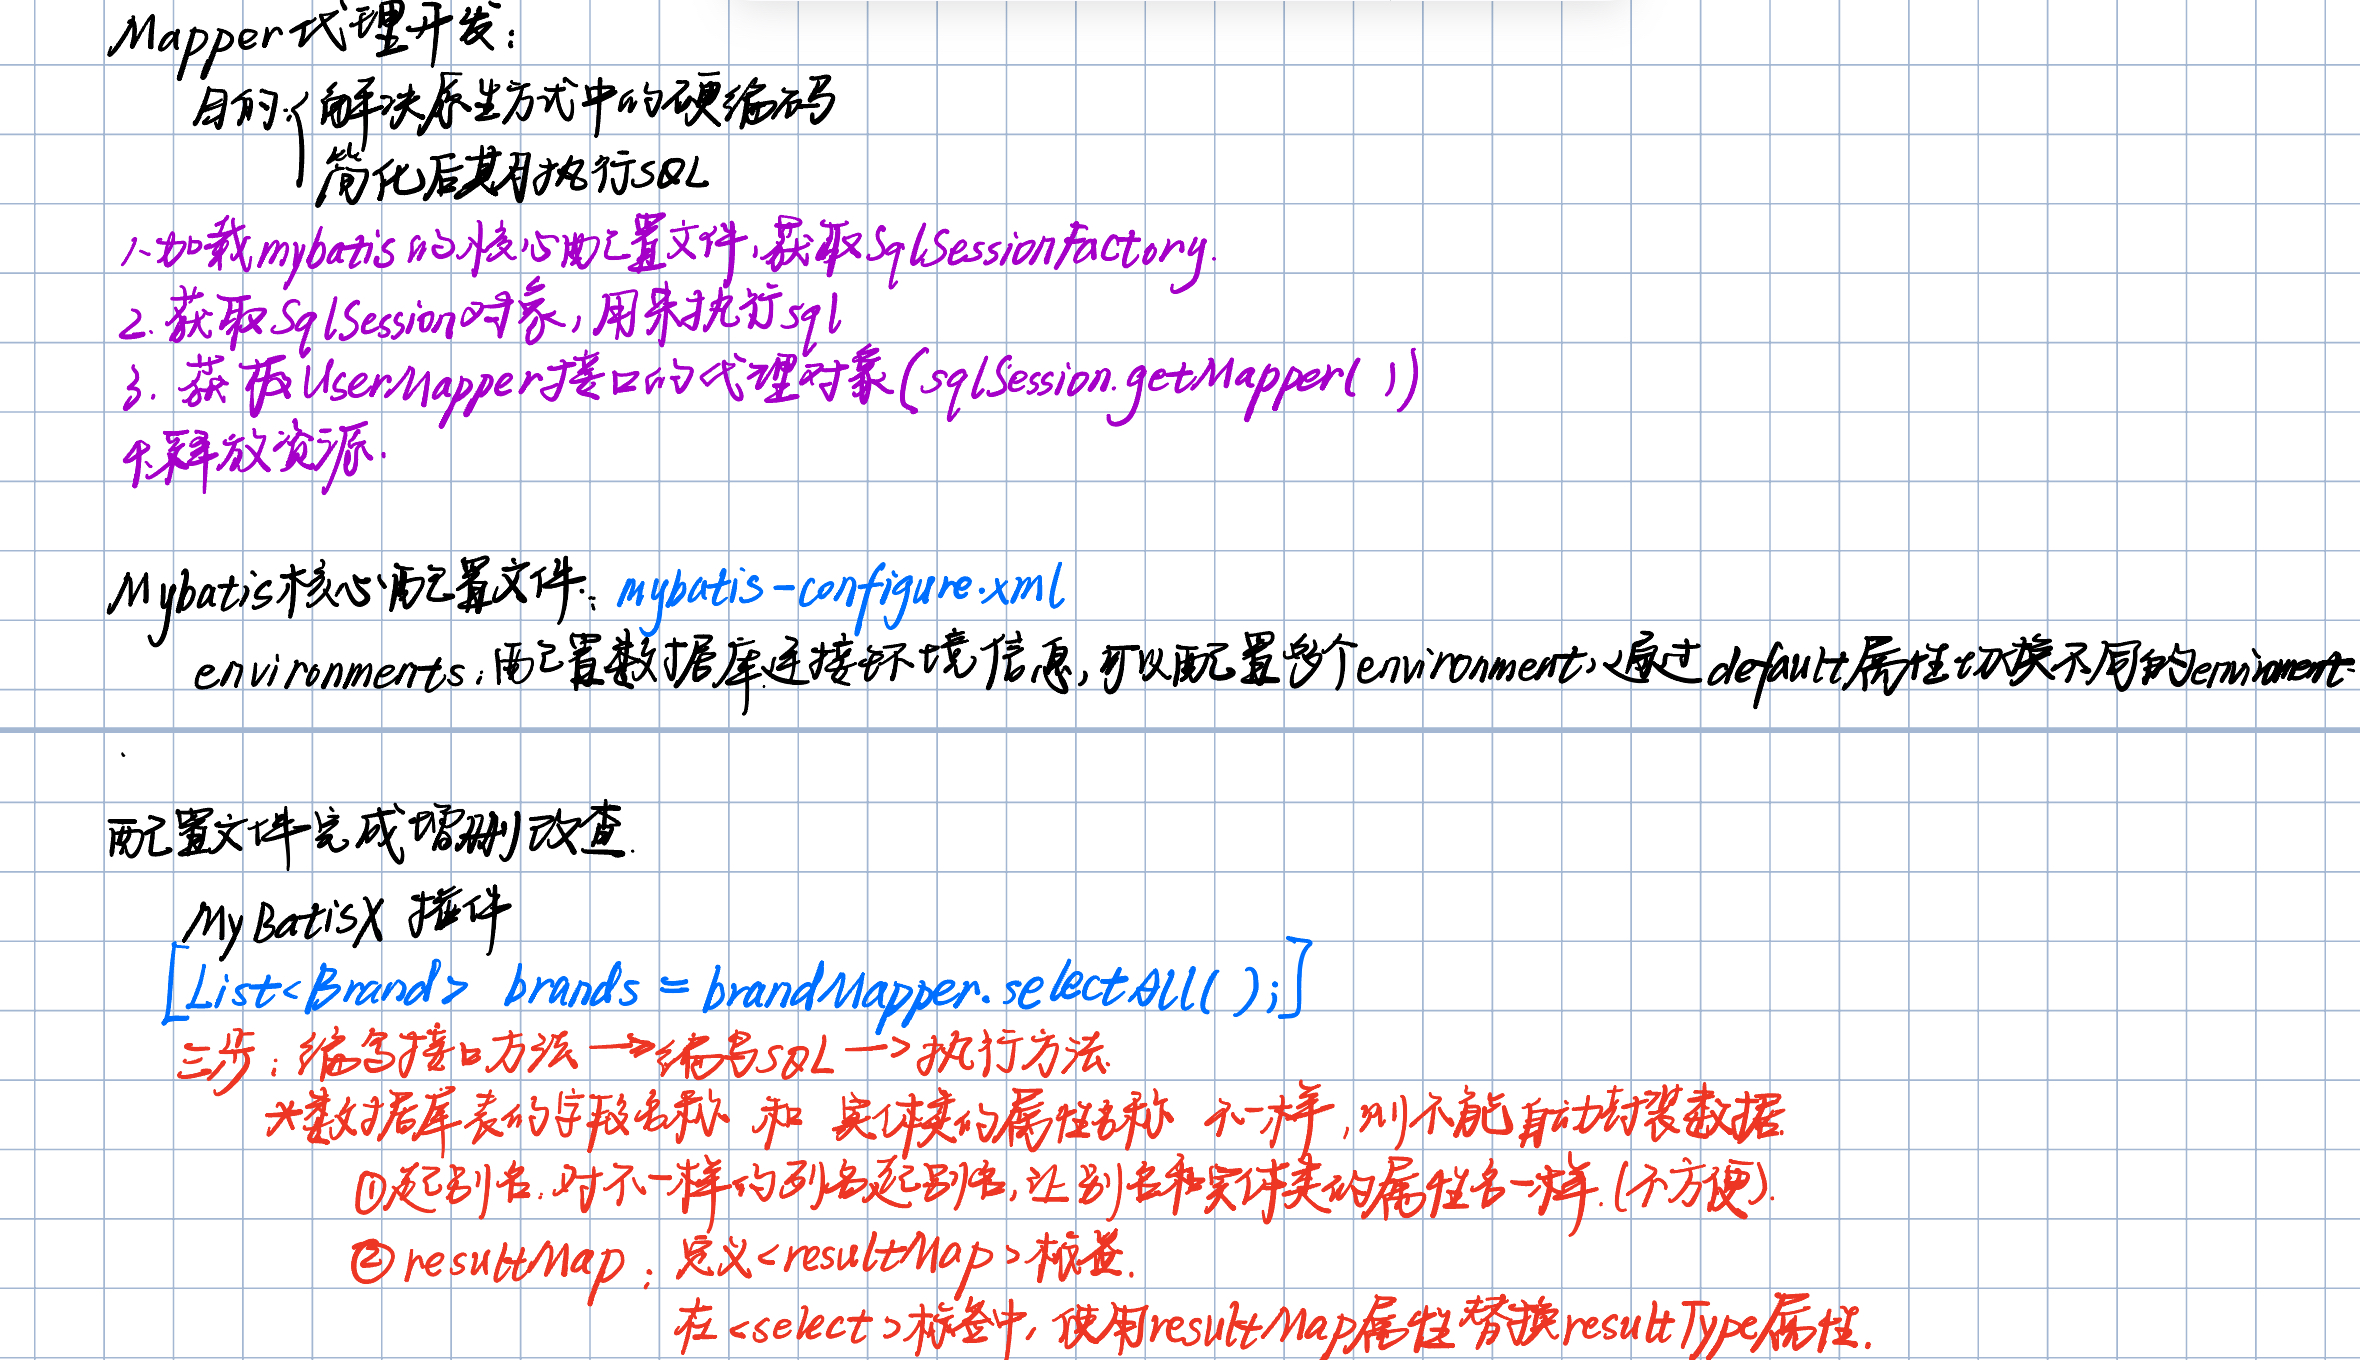 Mapper代理开发:
目的:{解决原生方式中的硬编码
简化后期执行SQL
1.加载mybatis的核心配置文件,获取SqlSessionFactory.
2.获取SqlSession对象,用来执行sql
3.获取UserMapper接口的代理对象(sqlSession.getMapper( ))
4.释放资源.
Mybatis核心配置文件: mybatis-configure.xml
environments:配置数据库连接环境信息,可以配置多个environment,通过default属性切换不同的envirnment
配置文件完成增删改查.
MyBatisX 插件
[List<Brand> brands = brandMapper.selectAll( );]
三步:编写接口方法→编写SQL→执行方法.
*数据库表的字段名称 和 实体类的属性名称 不一样,则不能自动封装数据
①起别名.对不一样的列名起别名,让别名和实体类的属性名一样.(不方便).
②resultMap: 定义<resultMap>标签.
在<select>标签中,使用resultMap属性替换resultType属性.